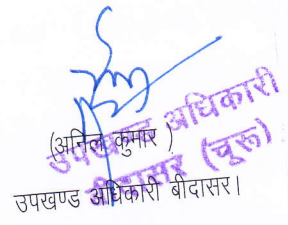 (अनिल कुमार )
उपखण्ड अधिकारी
बीदासर (चूरू)
उपखण्ड अधिकारी बीदासर।